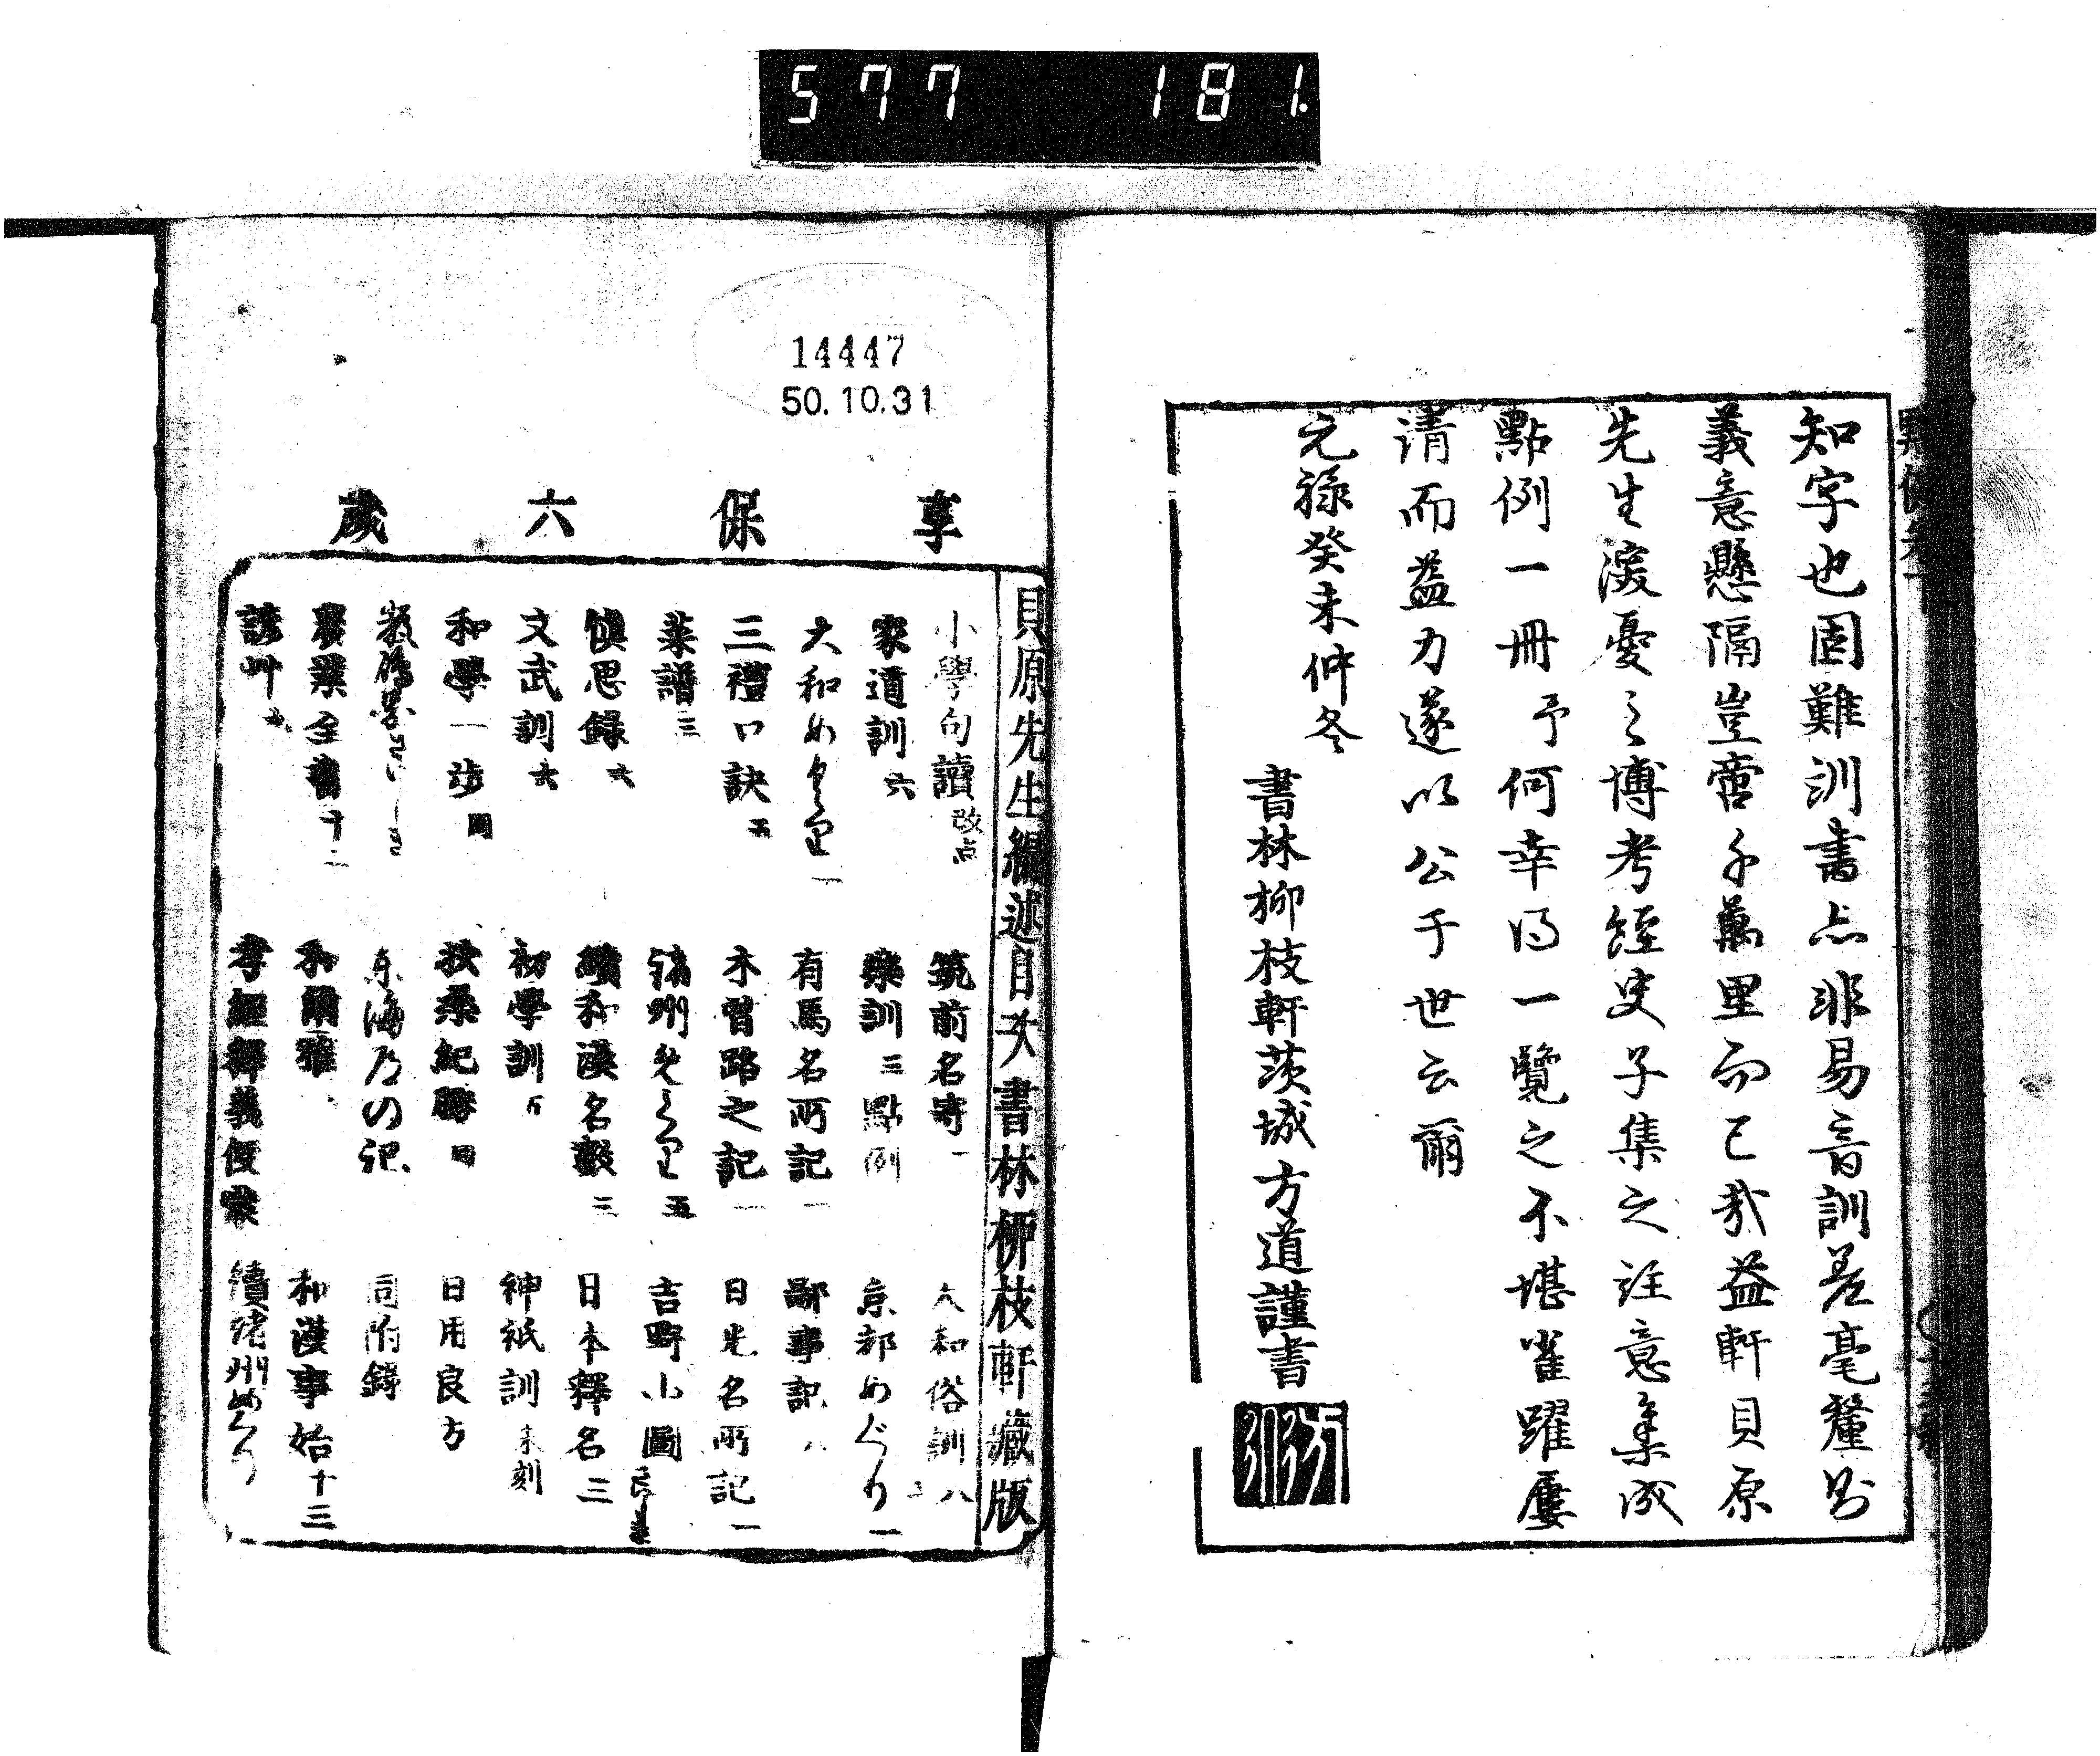 577 181.
知字也固難訓書亦非易音訓差毫釐則
義意懸隔豈啻千萬里而已哉益軒貝原
先生深憂之博考經史子集之註意集成
點例一冊予何幸得一覽之不堪雀躍屢
請而益力遂以公于世云爾
元祿癸未仲冬
書林柳枝軒茨城方道謹書
14447
50.10.31
享保六歲
貝原先生編述目次書林柳枝軒藏版
小學句讀改点
筑前名寄一
大和俗訓八
家道訓六
樂訓三 點例
京都めぐり一
大和めぐり一
有馬名所記一
鄙事記八
三禮口訣五
木曽路之記一
日光名所記一
菜譜三
諸州めぐり五
吉野小圖
慎思録六
續和漢名數三
日本釋名三
文武訓六
初學訓五
神祇訓未刻
和學一歩四
扶桑紀勝四
日用良方
東海道の記
同附録
農業全書十一
和爾雅
和漢事始十三
諺艸七
孝經釋義便蒙
續諸州めぐり